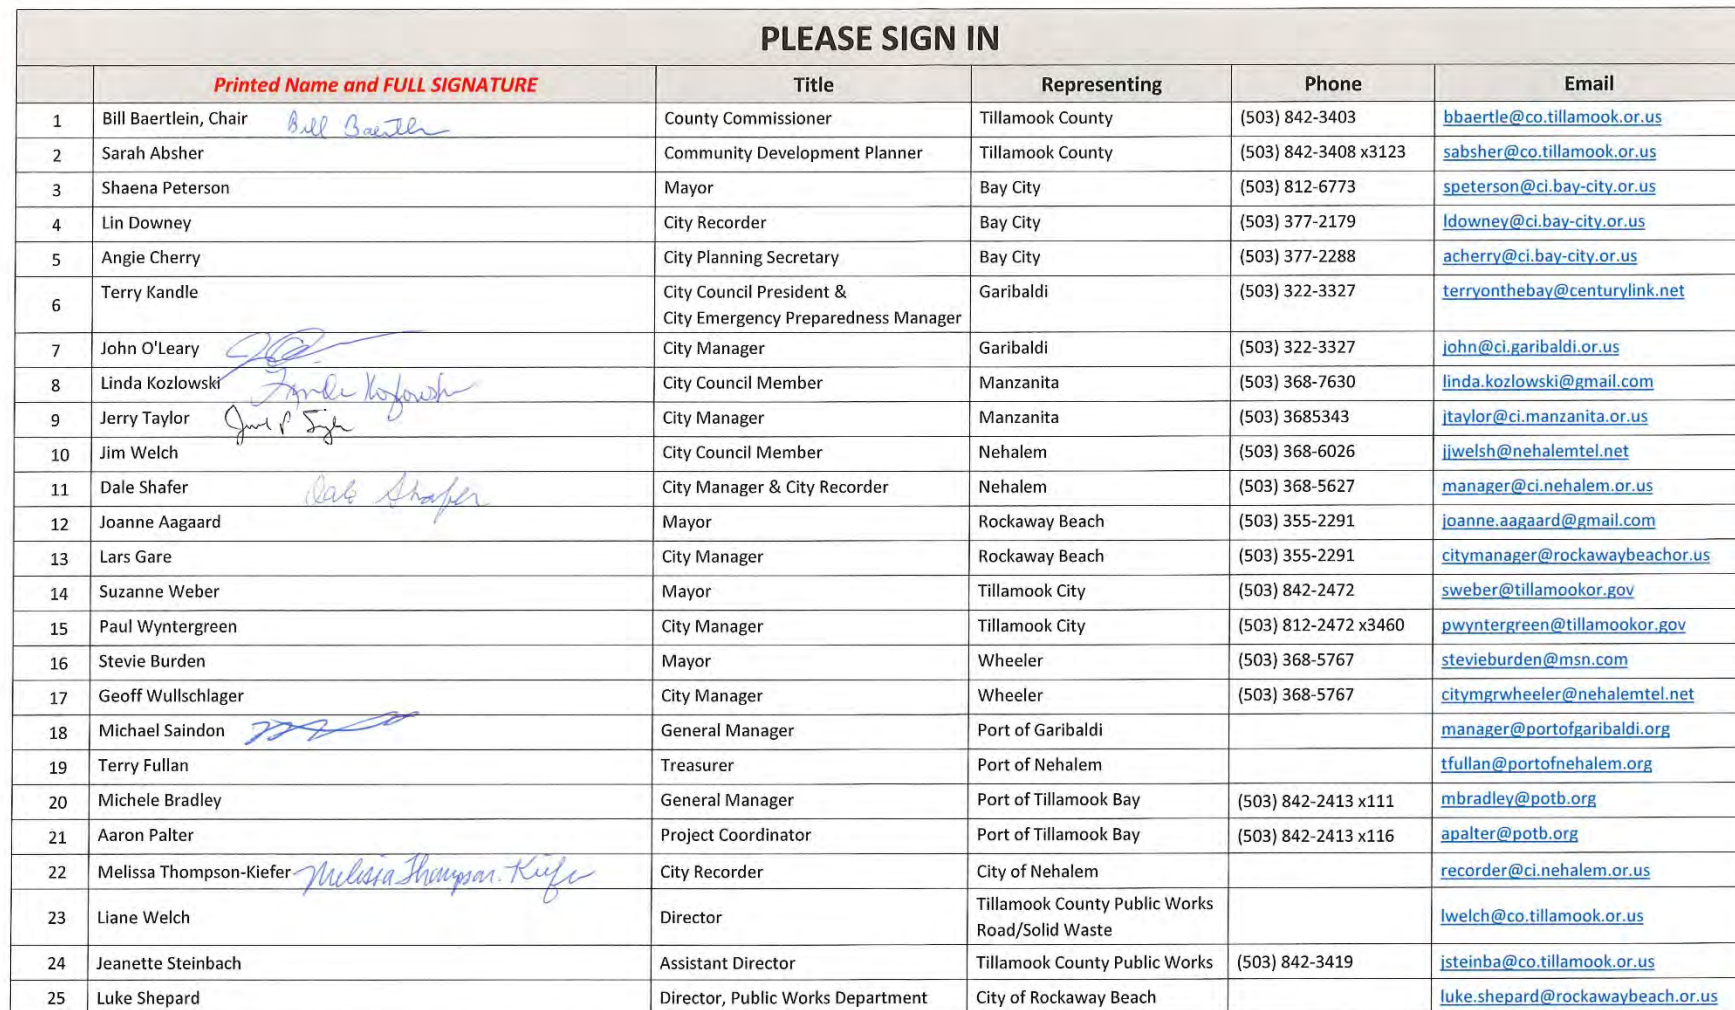 PLEASE SIGN IN
Printed Name and FULL SIGNATURE Title Representing Phone Email
1 Bill Baertlein, Chair Bill Baertlein County Commissioner Tillamook County (503) 842-3403 bbaertle@co.tillamook.or.us
2 Sarah Absher Community Development Planner Tillamook County (503) 842-3408 x3123 sabsher@co.tillamook.or.us
3 Shaena Peterson Mayor Bay City (503) 812-6773 speterson@ci.bay-city.or.us
4 Lin Downey City Recorder Bay City (503) 377-2179 ldowney@ci.bay-city.or.us
5 Angie Cherry City Planning Secretary Bay City (503) 377-2288 acherry@ci.bay-city.or.us
6 Terry Kandle City Council President & Garibaldi (503) 322-3327 terryonthebay@centurylink.net
City Emergency Preparedness Manager
7 John O'Leary City Manager Garibaldi (503) 322-3327 john@ci.garibaldi.or.us
8 Linda Kozlowski Linda Kozlowski City Council Member Manzanita (503) 368-7630 linda.kozlowski@gmail.com
9 Jerry Taylor City Manager Manzanita (503) 3685343 jtaylor@ci.manzanita.or.us
10 Jim Welch City Council Member Nehalem (503) 368-6026 jjwelsh@nehalemtel.net
11 Dale Shafer Dale Shafer City Manager & City Recorder Nehalem (503) 368-5627 manager@ci.nehalem.or.us
12 Joanne Aagaard Mayor Rockaway Beach (503) 355-2291 joanne.aagaard@gmail.com
13 Lars Gare City Manager Rockaway Beach (503) 355-2291 citymanager@rockawaybeachor.us
14 Suzanne Weber Mayor Tillamook City (503) 842-2472 sweber@tillamookor.gov
15 Paul Wyntergreen City Manager Tillamook City (503) 812-2472 x3460 pwyntergreen@tillamookor.gov
16 Stevie Burden Mayor Wheeler (503) 368-5767 stevieburden@msn.com
17 Geoff Wullschlager City Manager Wheeler (503) 368-5767 citymgrwheeler@nehalemtel.net
18 Michael Saindon General Manager Port of Garibaldi manager@portofgaribaldi.org
19 Terry Fullan Treasurer Port of Nehalem tfullan@portofnehalem.org
20 Michele Bradley General Manager Port of Tillamook Bay (503) 842-2413 x111 mbradley@potb.org
21 Aaron Palter Project Coordinator Port of Tillamook Bay (503) 842-2413 x116 apalter@potb.org
22 Melissa Thompson-Kiefer Melissa Thompson-Kiefer City Recorder City of Nehalem recorder@ci.nehalem.or.us
23 Liane Welch Director Tillamook County Public Works lwelch@co.tillamook.or.us
Road/Solid Waste
24 Jeanette Steinbach Assistant Director Tillamook County Public Works (503) 842-3419 jsteinba@co.tillamook.or.us
25 Luke Shepard Director, Public Works Department City of Rockaway Beach luke.shepard@rockawaybeach.or.us